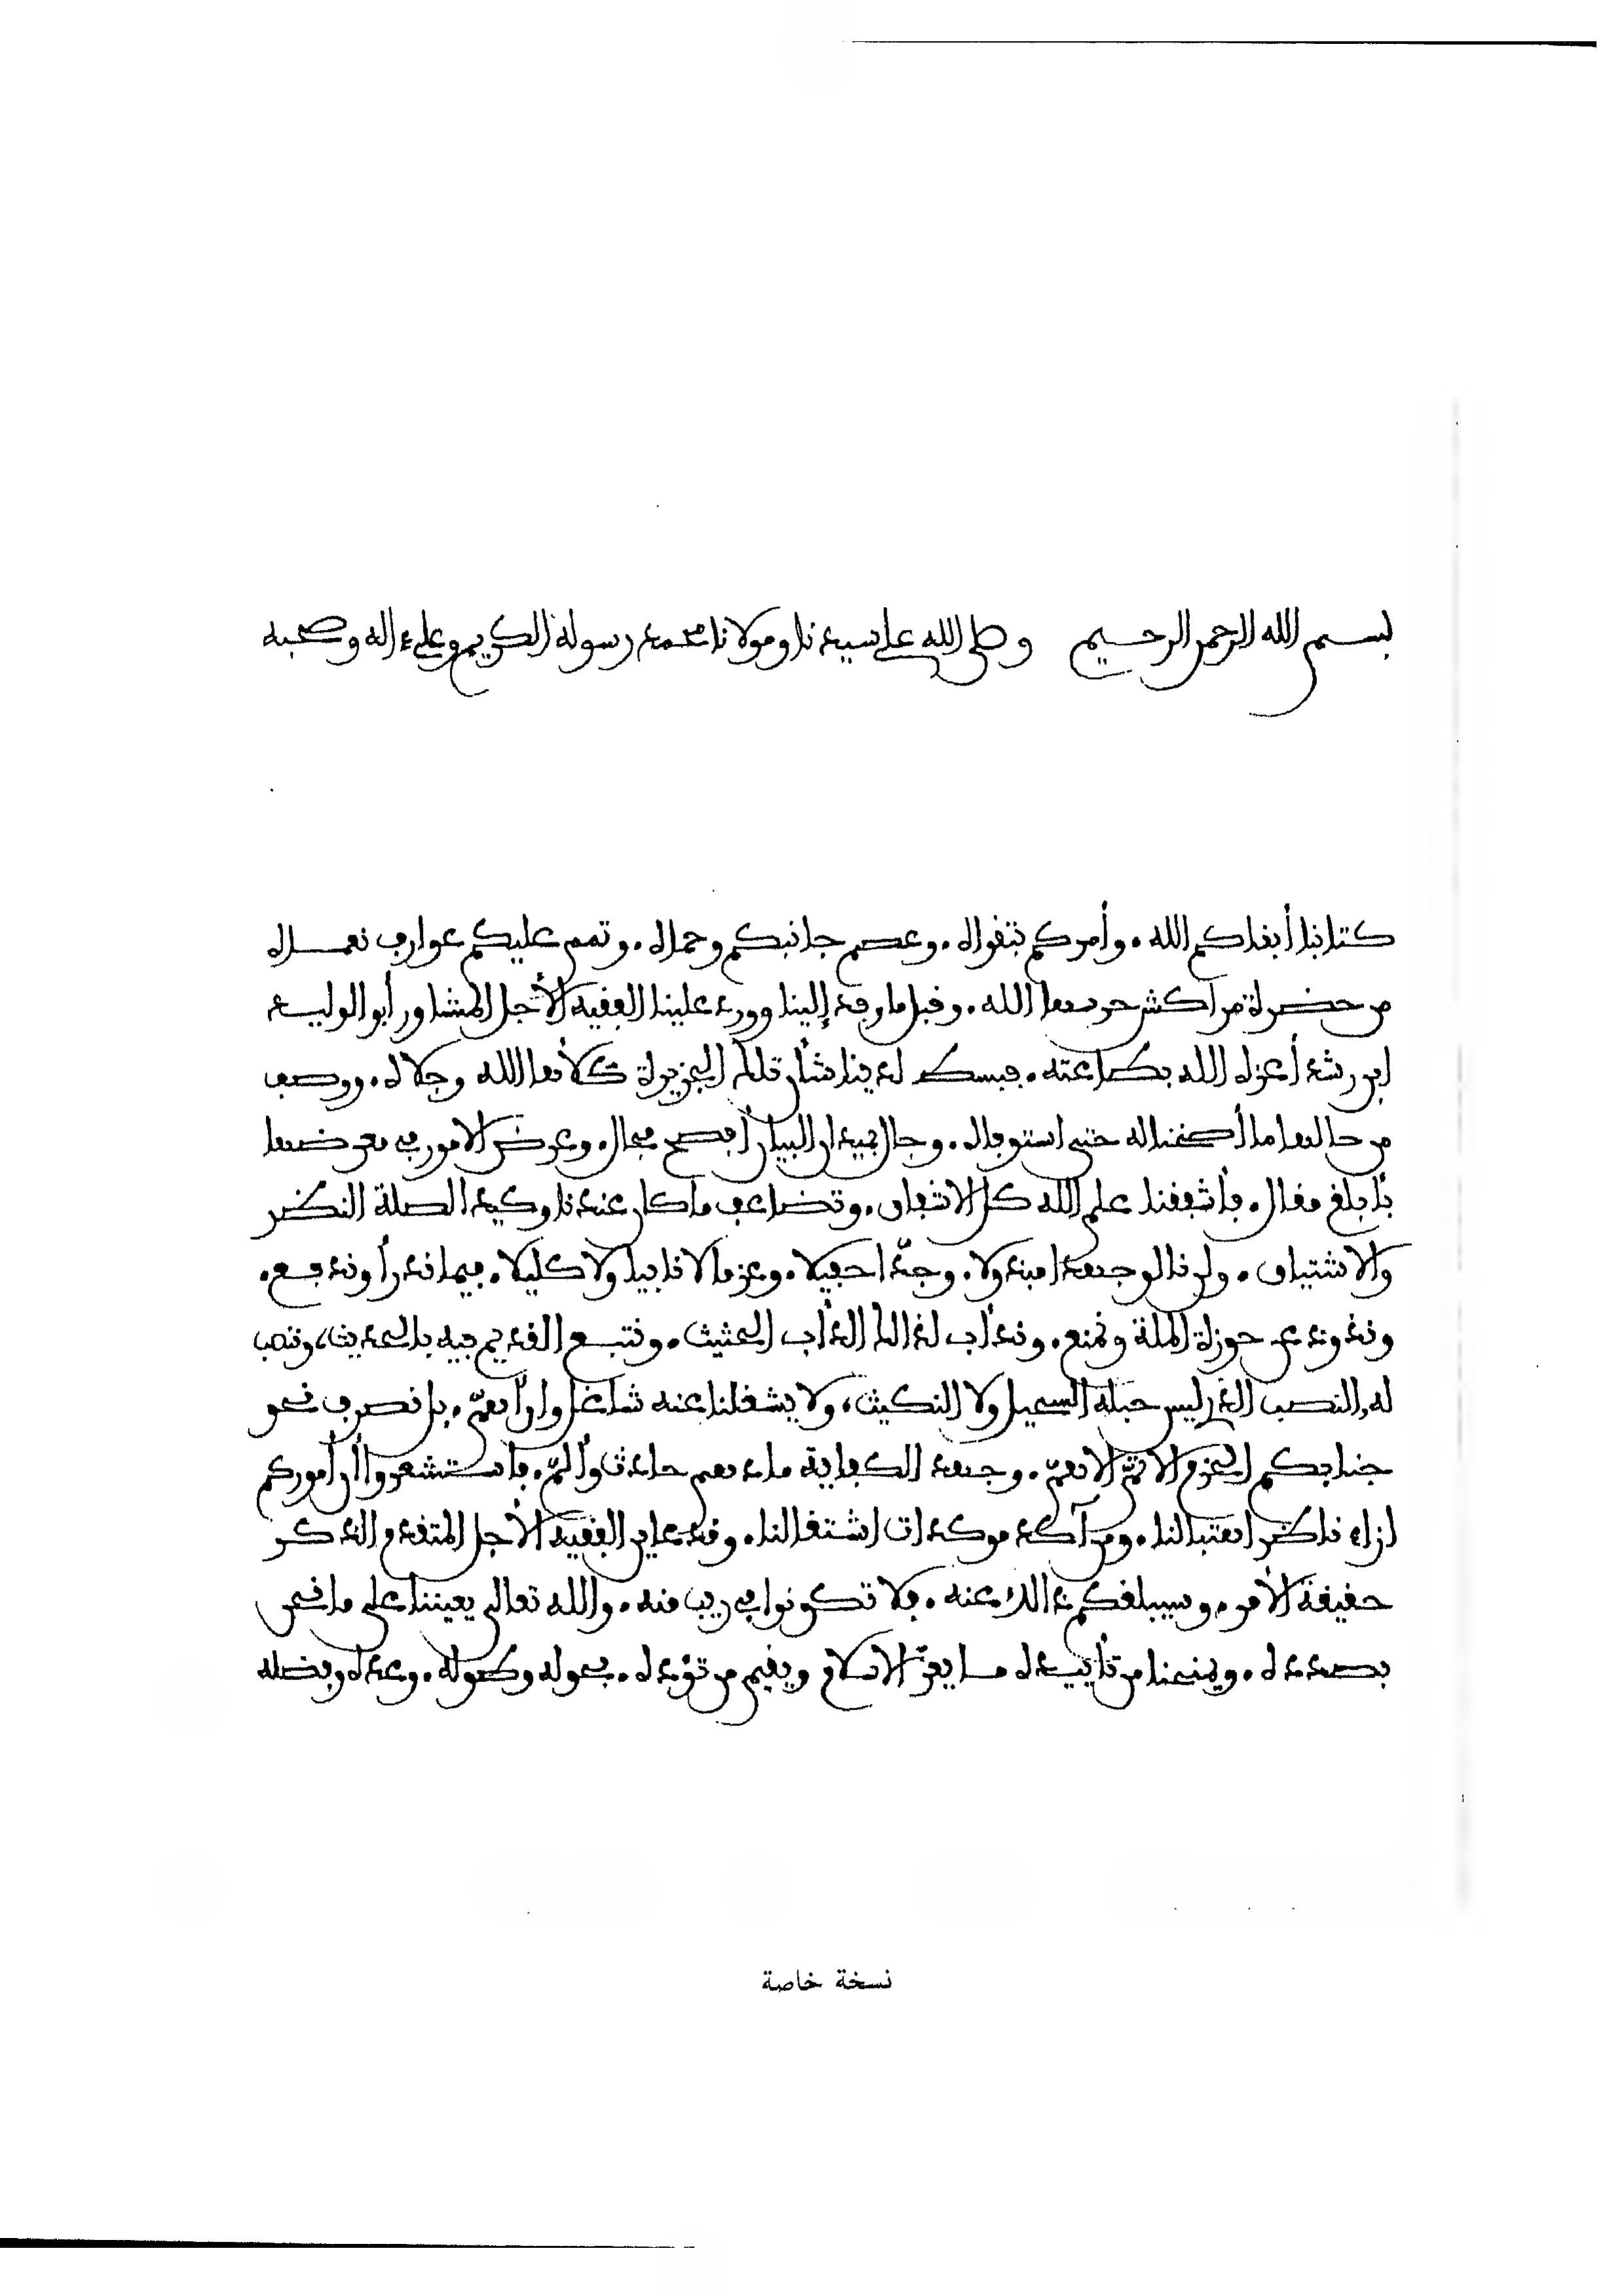 بسم الله الرحمن الرحيم وصلى الله على سيدنا ومولانا محمد رسوله الكريم وعلى ءاله وصحبه
كتابنا أبقاكم الله . وأمركم بتقواه . وعصم جانبكم وحماه . وتمم عليكم عوارف نعماه
من حضرة مراكش حرسها الله . وقبل ما وفد إلينا وورد علينا الفقيه الأجل المشاور أبو الوليد
ابن رشد أعزه الله بطاعته . فبسط لدينا شأن تلك الجزيرة كلأها الله وجلاه . ووصف
من حالها ما أصغنا له حتى استوفاه . وجال بميدان البيان أفصح مجال . وعرض الأمور في معرضها
بأبلغ مقال . فأشفقنا علم الله كل الاشفاق . وتضاعف ما كان عندنا وكيد الصلة النظر
والاشتياق . ولن نألو جهدا مبذولا . وجدّا حفيلا . وعزما لا نابيا ولا كليلا . فيما ندرأ وندفع .
ونذود عن حوزة الملة ونمنع . وندأب لذالك الدأب الحثيث . ونتبع القديم فيه بالحديث ، وننصب
له النصب الذي ليس حبله السحيل ولا النكيث ، ولا يشغلنا عنه شاغل وان أهمّ . بل نصرف نحو
جنابكم الحزم الاتمّ الاهمّ . وجهد الكفاية ما دهم حادث وألمّ . فاستشعروا أن أموركم
ازاء ناظر اهتبالنا . ومن آكد موكدات اشتغالنا . وقد عاين الفقيه الأجل المتقدم الذكر
حقيقة الأمر . وسيبلغكم ذالك عنه . فلا تكونوا في ريب منه . والله تعالى يعيننا على ما نحن
بصدده . ويمنحنا من تأييده ما يعزّ الاسلام ويقيم من تؤده . بحوله وطوله . وعدله وبفضله
نسخة خاصة